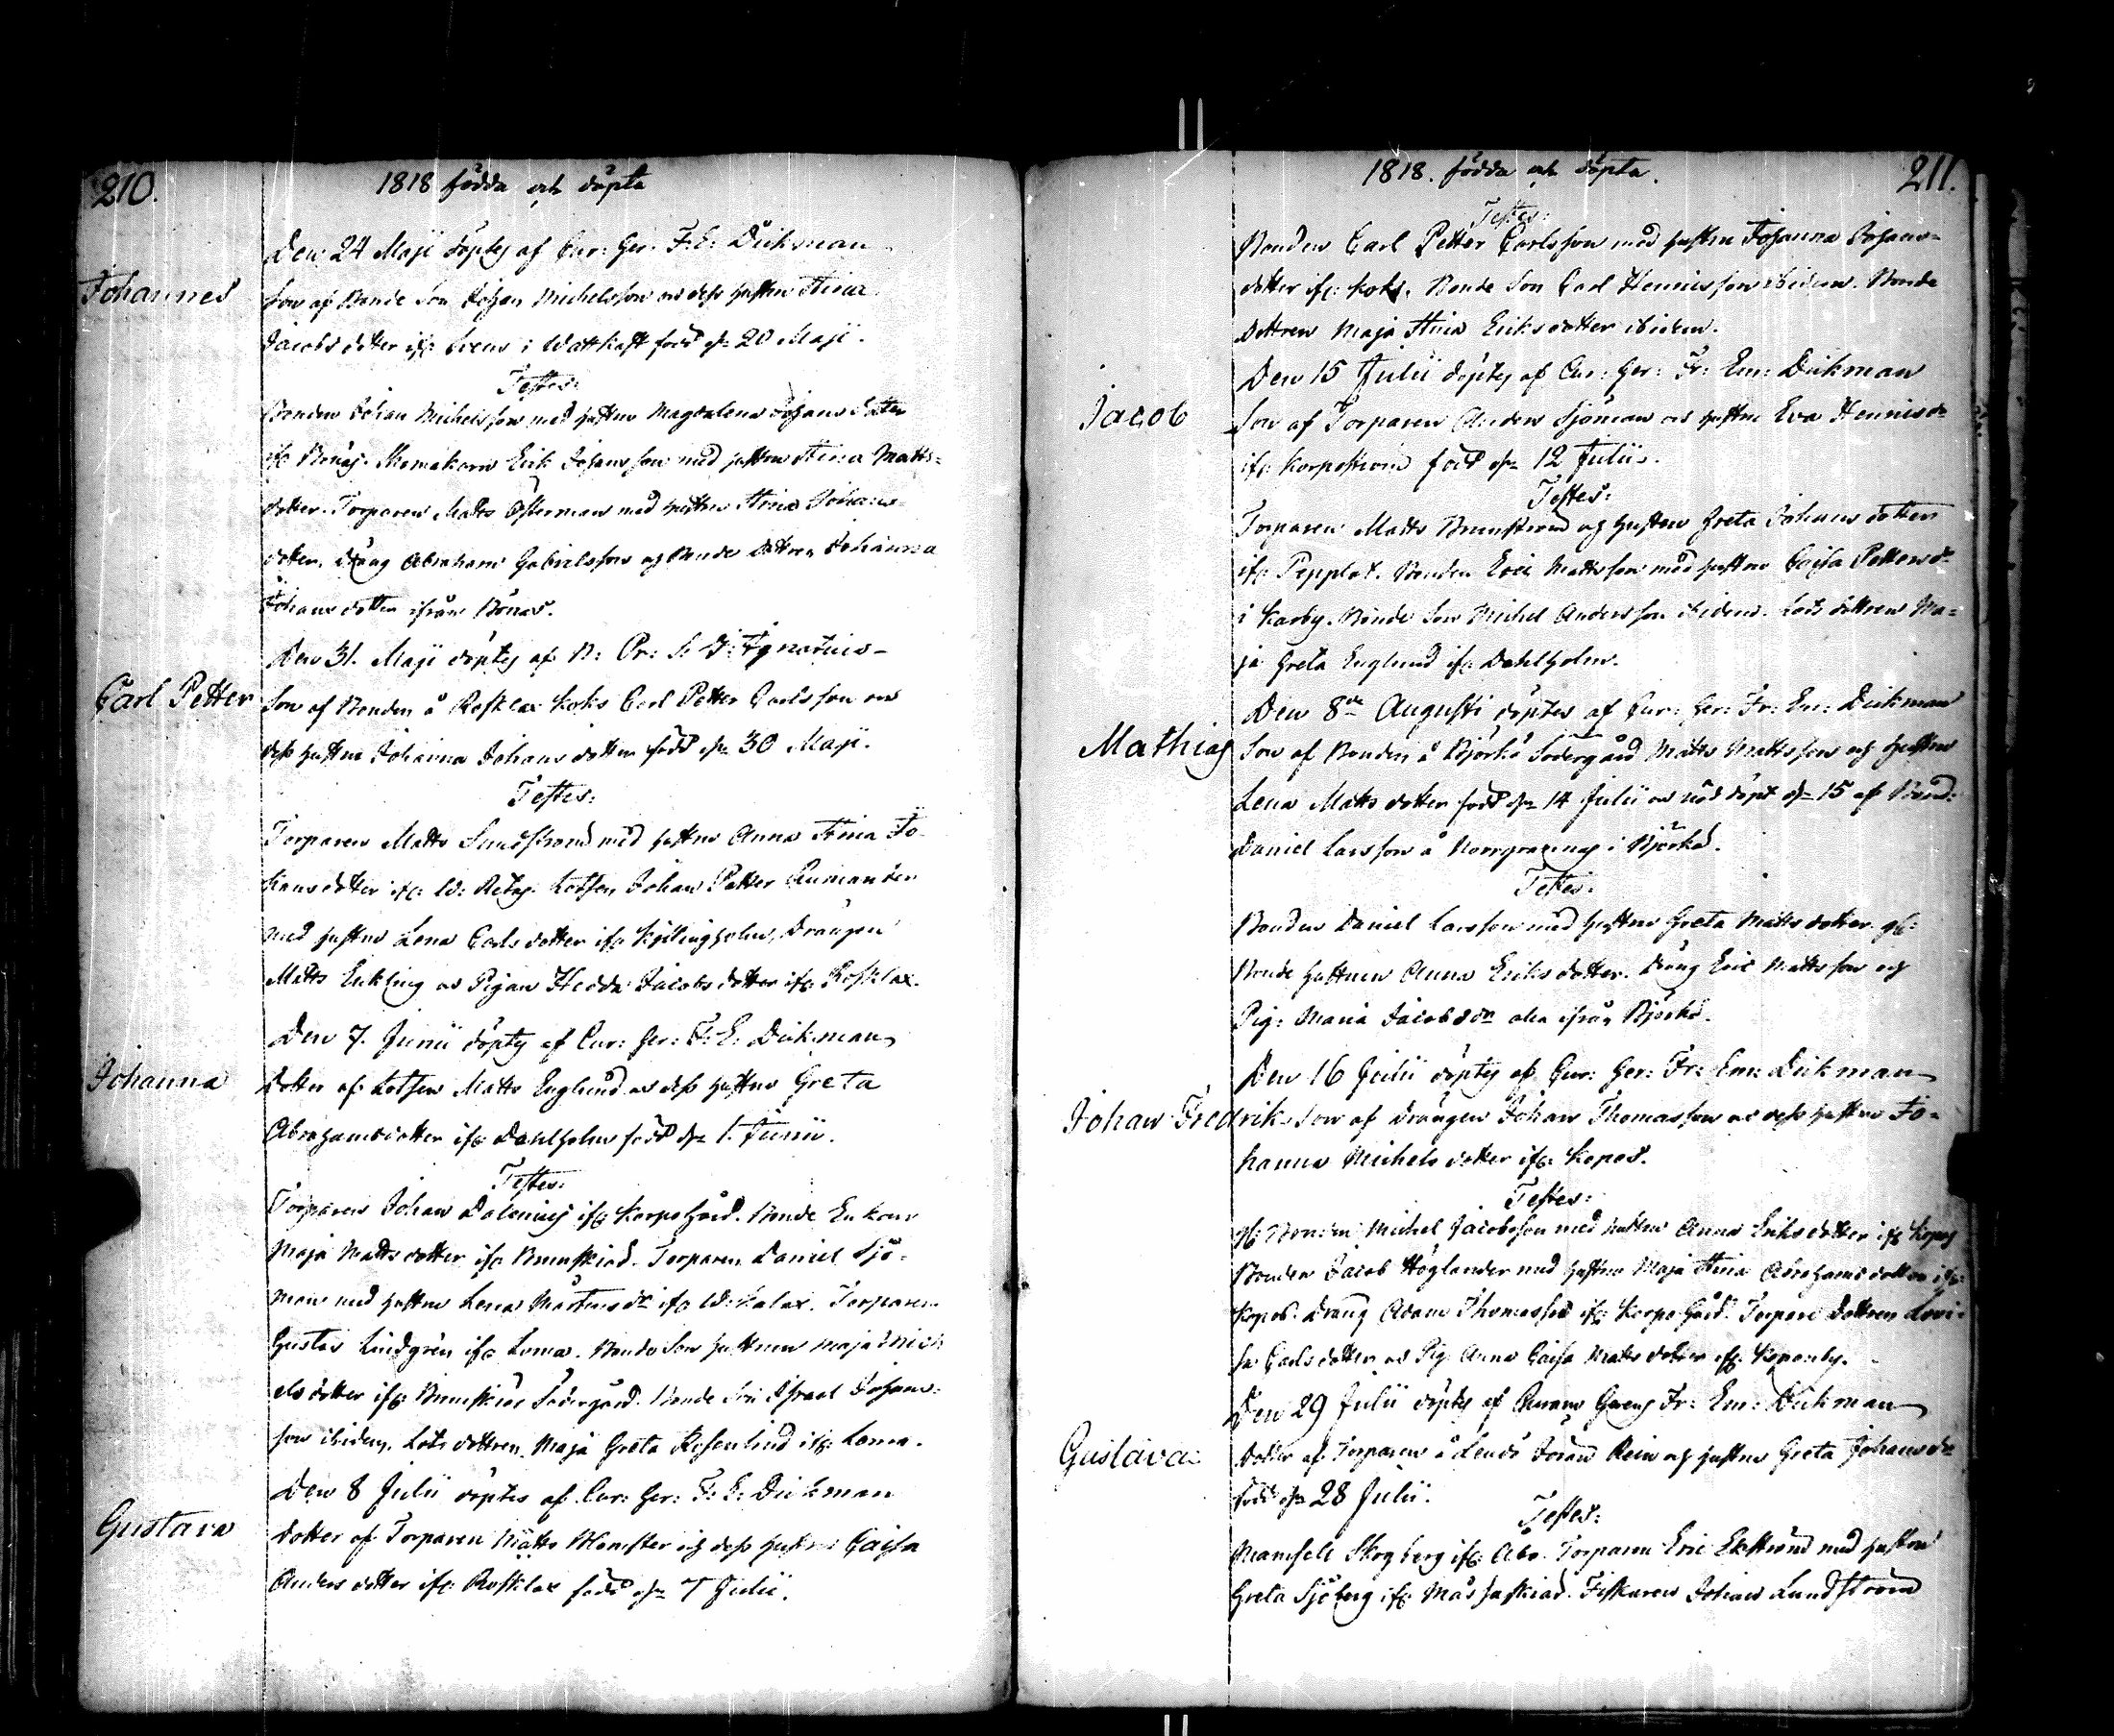 210.
1818 födda och döpta
Den 24 Maji döptes af Cur: Ger: F: E: Dickman
Johannes
Son af Bonde Son Johan Michelsson och dess hustru Stina
Jacobsdotter ifr: i Wattkast född d: 20 Maji.
Testes:
Bonden Johan Michelsson med hustru Magdalena Johansdotter
ifr: Skomakarn Erik Johansson med hustru Stina Matts-
dotter. Torparen Matts Österman med hustru Stina Johans-
dotter, dräng Abraham Gabrielsson och Bonde dottren Johanna
Johansdotter ifrån Bönäs.
Den 31. Maji döptes af Ignatius
Carl Petter
Son af Bonden å Rosklax Koks Carl Petter Carlsson och
dess hustru Johanna Johansdotter född d: 30 Maji.
Testes:
Torparen Matts Sundstrand med hustru Anna Stina Jo-
hansdotter ifr: W: Retais. Lotsen Johan Petter
med hustru Lena Carlsdotter ifr: Källingholm, Drängen
Matts Enkling och Pigan Hedda Jacobsdotter ifr: Rosklax.
Den 7. Junii döptes af Cur: Ger: F: E: Dickman
Johanna
Dotter af Lotsen Matts Englund och dess hustru Greta
Abrahamsdotter ifr: Dahlholm född d: 1. Junii.
Testes:
Torparen Johan Dalenius ifr: Korpo Gård. Bonde Enkan
Maja Mattsdotter ifr: Brunskiäd. Torparen Daniel Sjö-
man med hustru Lena Mårtensdr ifr: W: Kalax. Torparen
Gustav Lindgrén ifr: Loma. Bonde Son hustrun Maja Mich
elsdotter ifr: Brunskiär Södergård. Bonde Son Israel Johans-
son ibidem, Lots dottren Maja Greta Rosenlund ifr: Loma.
Den 8 Julii döptes af Cur: Ger: F: E: Dickman
Gustava
Dotter af Torparen Matts Blomster och dess hustru Cajsa
Andersdotter ifr: Rosklax född d: 7 Julii.
1818. födda och döpta.
211.
Testes:
Bonden Carl Petter Carlsson med hustru Johanna Johans-
dotter ifr: Koks. Bonde Son Carl Hennisson ibidem. Bonde
Dottren Maja Stina Eriksdotter ibidem.
Den 15 Julii döptes af Cur: Ger: Fr: Em: Dickman
Jacob
Son af Torparen Anders Sjöman och hustru Eva Hennisdr
ifr: Korpoström född d: 12 Julii.
Testes:
Torparen Matts Brunstrand och hustru Greta Johansdotter
ifr: Pepplot. Bonden Eric Mattsson med hustru Cajsa Pettersdr
i Karby. Bonde Son Michel Andersson ibidem. Lots dottren Ma-
ja Greta Englund ifr: Dahlholm.
Den 8de Augusti döptes af Cur: Ger: Fr: Em: Dickman
Mathias
Son af Bonden å Björkö Södergård Matts Mattsson och hustru
Lena Mattsdotter född d: 14 Julii och nöddöpt d: 15 af Bond:
Daniel Larsson å Norrgrannas i Björkö.
Testes:
Bonden Daniel Larsson med hustru Greta Mattsdotter. gl:
Bonde hustrun Anna Eriksdotter. Dräng Eric Mattsson och
Pig: Maria Jacobsdr alla ifrån Björkö.
Den 16 Julii döptes af Cur: Ger: Fr: Em: Dickman
Johan Fredrik
Son af Drängen Johan Thomasson och dess hustru Jo-
hanna Michelsdotter ifr: Kopos.
Testes:
gl: Bonden Michel Jacobsson med hustru Anna Eriksdotter ifr: Kopos
Bonden Jacob Höglander med hustru Maja Stina Abrahamsdotter ifr:
Kopos. Dräng Adam Thomasson ifr: Korpo Gård. Torpare dottren Lovi-
sa Carlsdotter och Pig: Anna Cajsa Mattsdotter ifr:
Den 29 Julii döptes af Curam Gerens Fr: Em: Dickman
Gustava
Dotter af Torparen å Lends Johan Rein och hustru Greta Johansdr
född d: 28 Julii.
Testes:
Mamsell Skogberg ifr: Åbo. Torparen Eric Ekstrand med hustru
Greta Sjöberg ifr: Måsshaskiäd. Fiskaren Johan Lundström